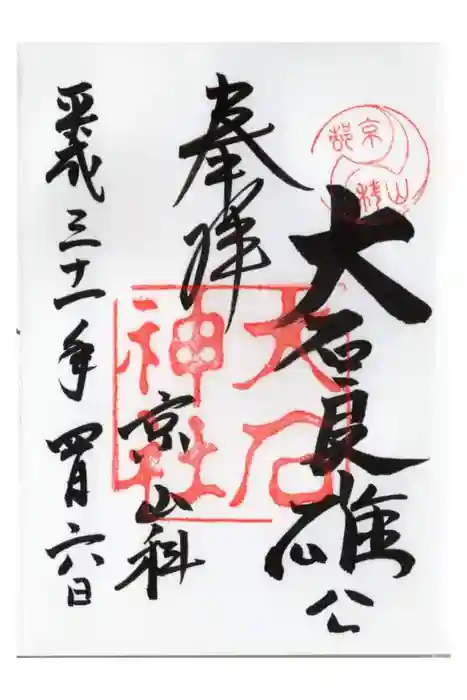 京都
山科
大石良雄公
奉拝
大石
神社
京山科
平成三十一年四月六日